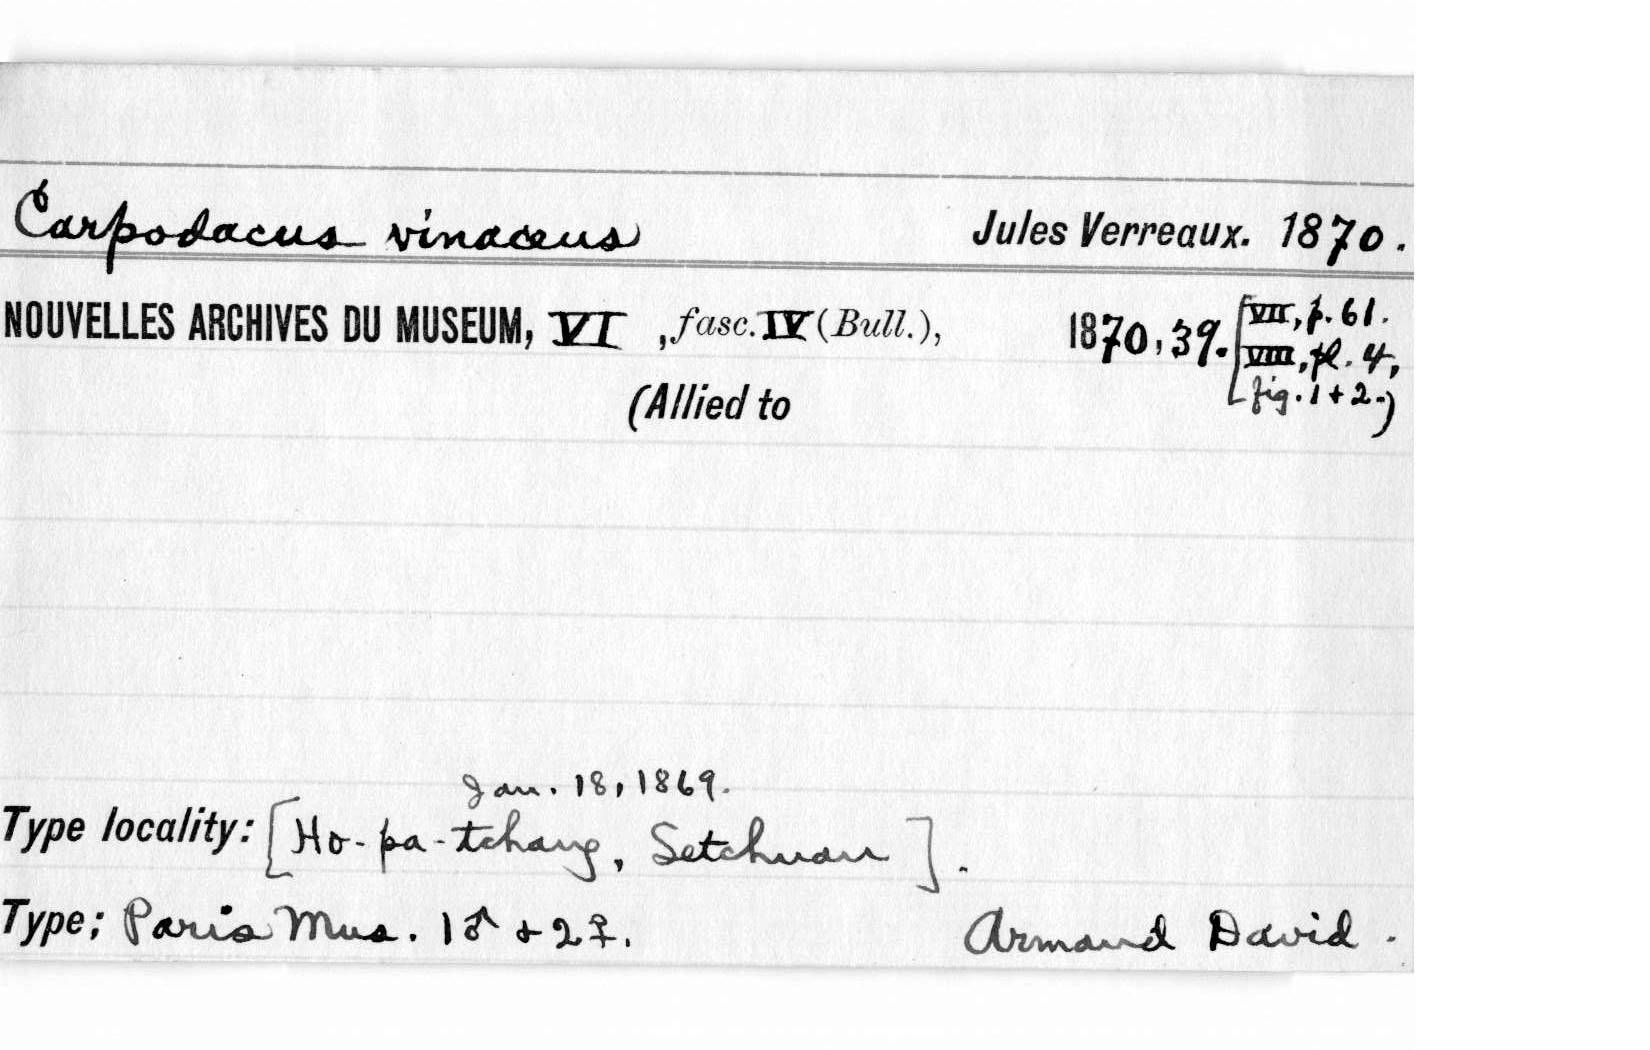 Carpodacus vinaceus Jules Verreaux. 1870.
NOUVELLES ARCHIVES DU MUSEUM, VI , fasc. IV (Bull.), 1870, 39. [VII, p. 61.
VIII, pl. 4,
fig. 1 + 2.)
(Allied to
Jan. 18, 1869.
Type locality: [Ho-pa-tchang, Setchuan].
Type; Paris Mus. 1♂ + 2♀. Armand David.